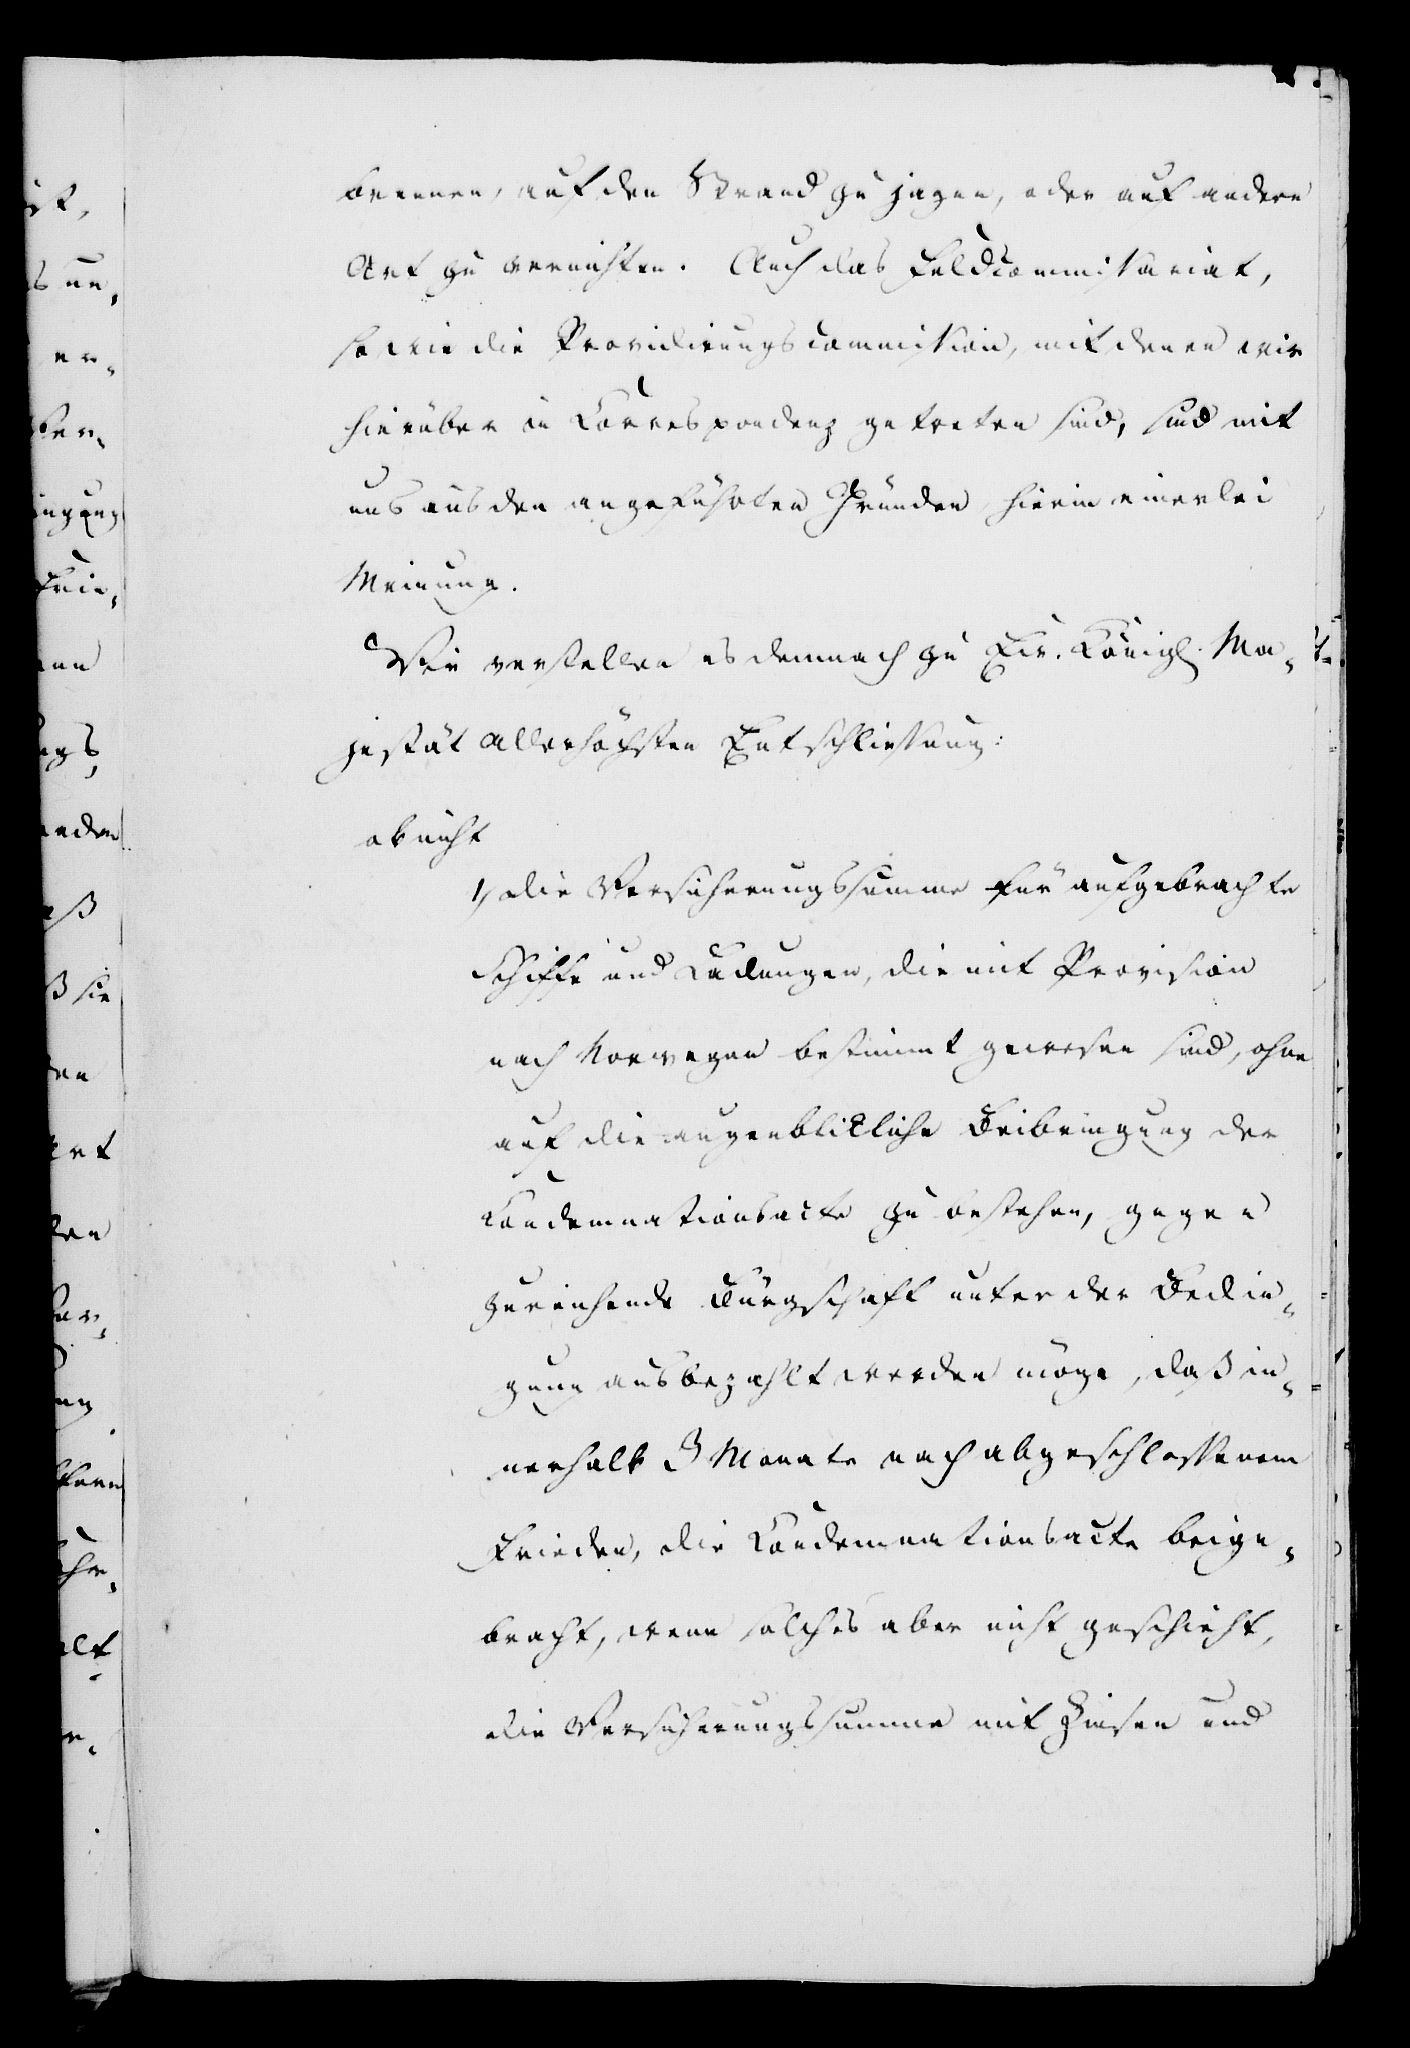 brennen, auf den Strand zu jagen, oder auf andere
Art zu vernichten. Auch das Feldcommissariat,
so wie die Providirungscommission, mit denen wir
hierüber in Correspondenz getreten sind, sind mit
uns aus den angeführten Gründen hierin einerlei
Meinung.
Wir verstellen es demnach zu Ew. Königl. Ma-
jestät Allerhöchsten Entschliessung:
ob nicht
1/ die Versicherungssumme für aufgebrachte
Schiffe und Ladungen, die mit Provision
nach Norwegen bestimmt gewesen sind, ohne
auf die augenblickliche Beibringung der
Condemnationsacte zu bestehen, gegen
zureichende Bürgschaft unter der Bedin-
gung ausbezahlt werden möge, daß in-
nerhalb 3 Monate nach abgeschlossenem
Frieden, die Condemnationsacte beige-
bracht, wenn solches aber nicht geschieht,
die Versicherungssumme mit Zinsen und